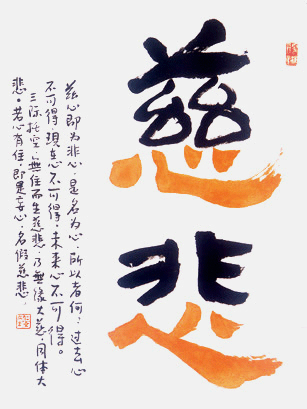 慈悲
兹心即为非心，是名为心，所以者何：过去心
不可得，現在心不可得，未来心不可得。
三际托空，無住而生慈悲，乃無缘大慈，同体大
悲。若心有住，即是妄心，名假慈悲。